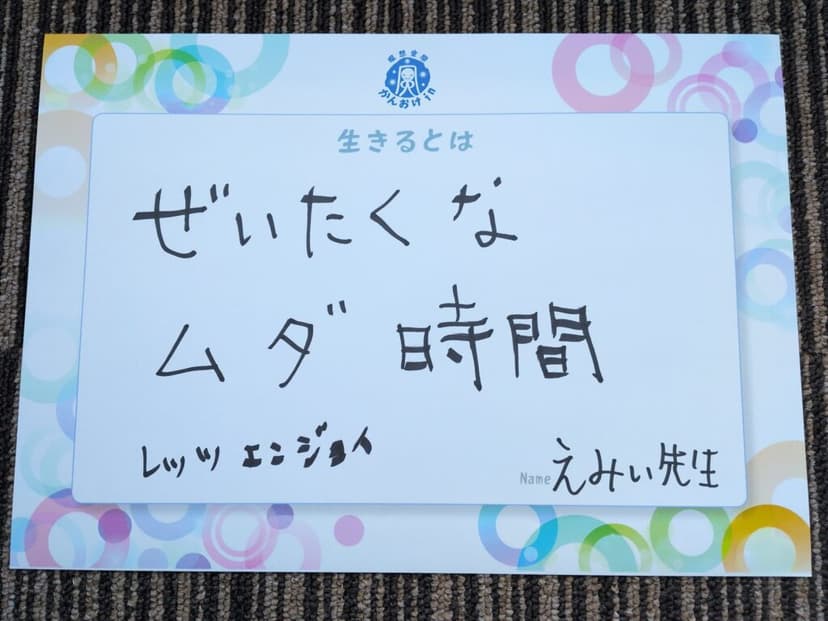 瞑想空間
かんおけin
生きるとは
ぜいたくな
ムダ時間
レッツ エンジョイ
Name えみい先生